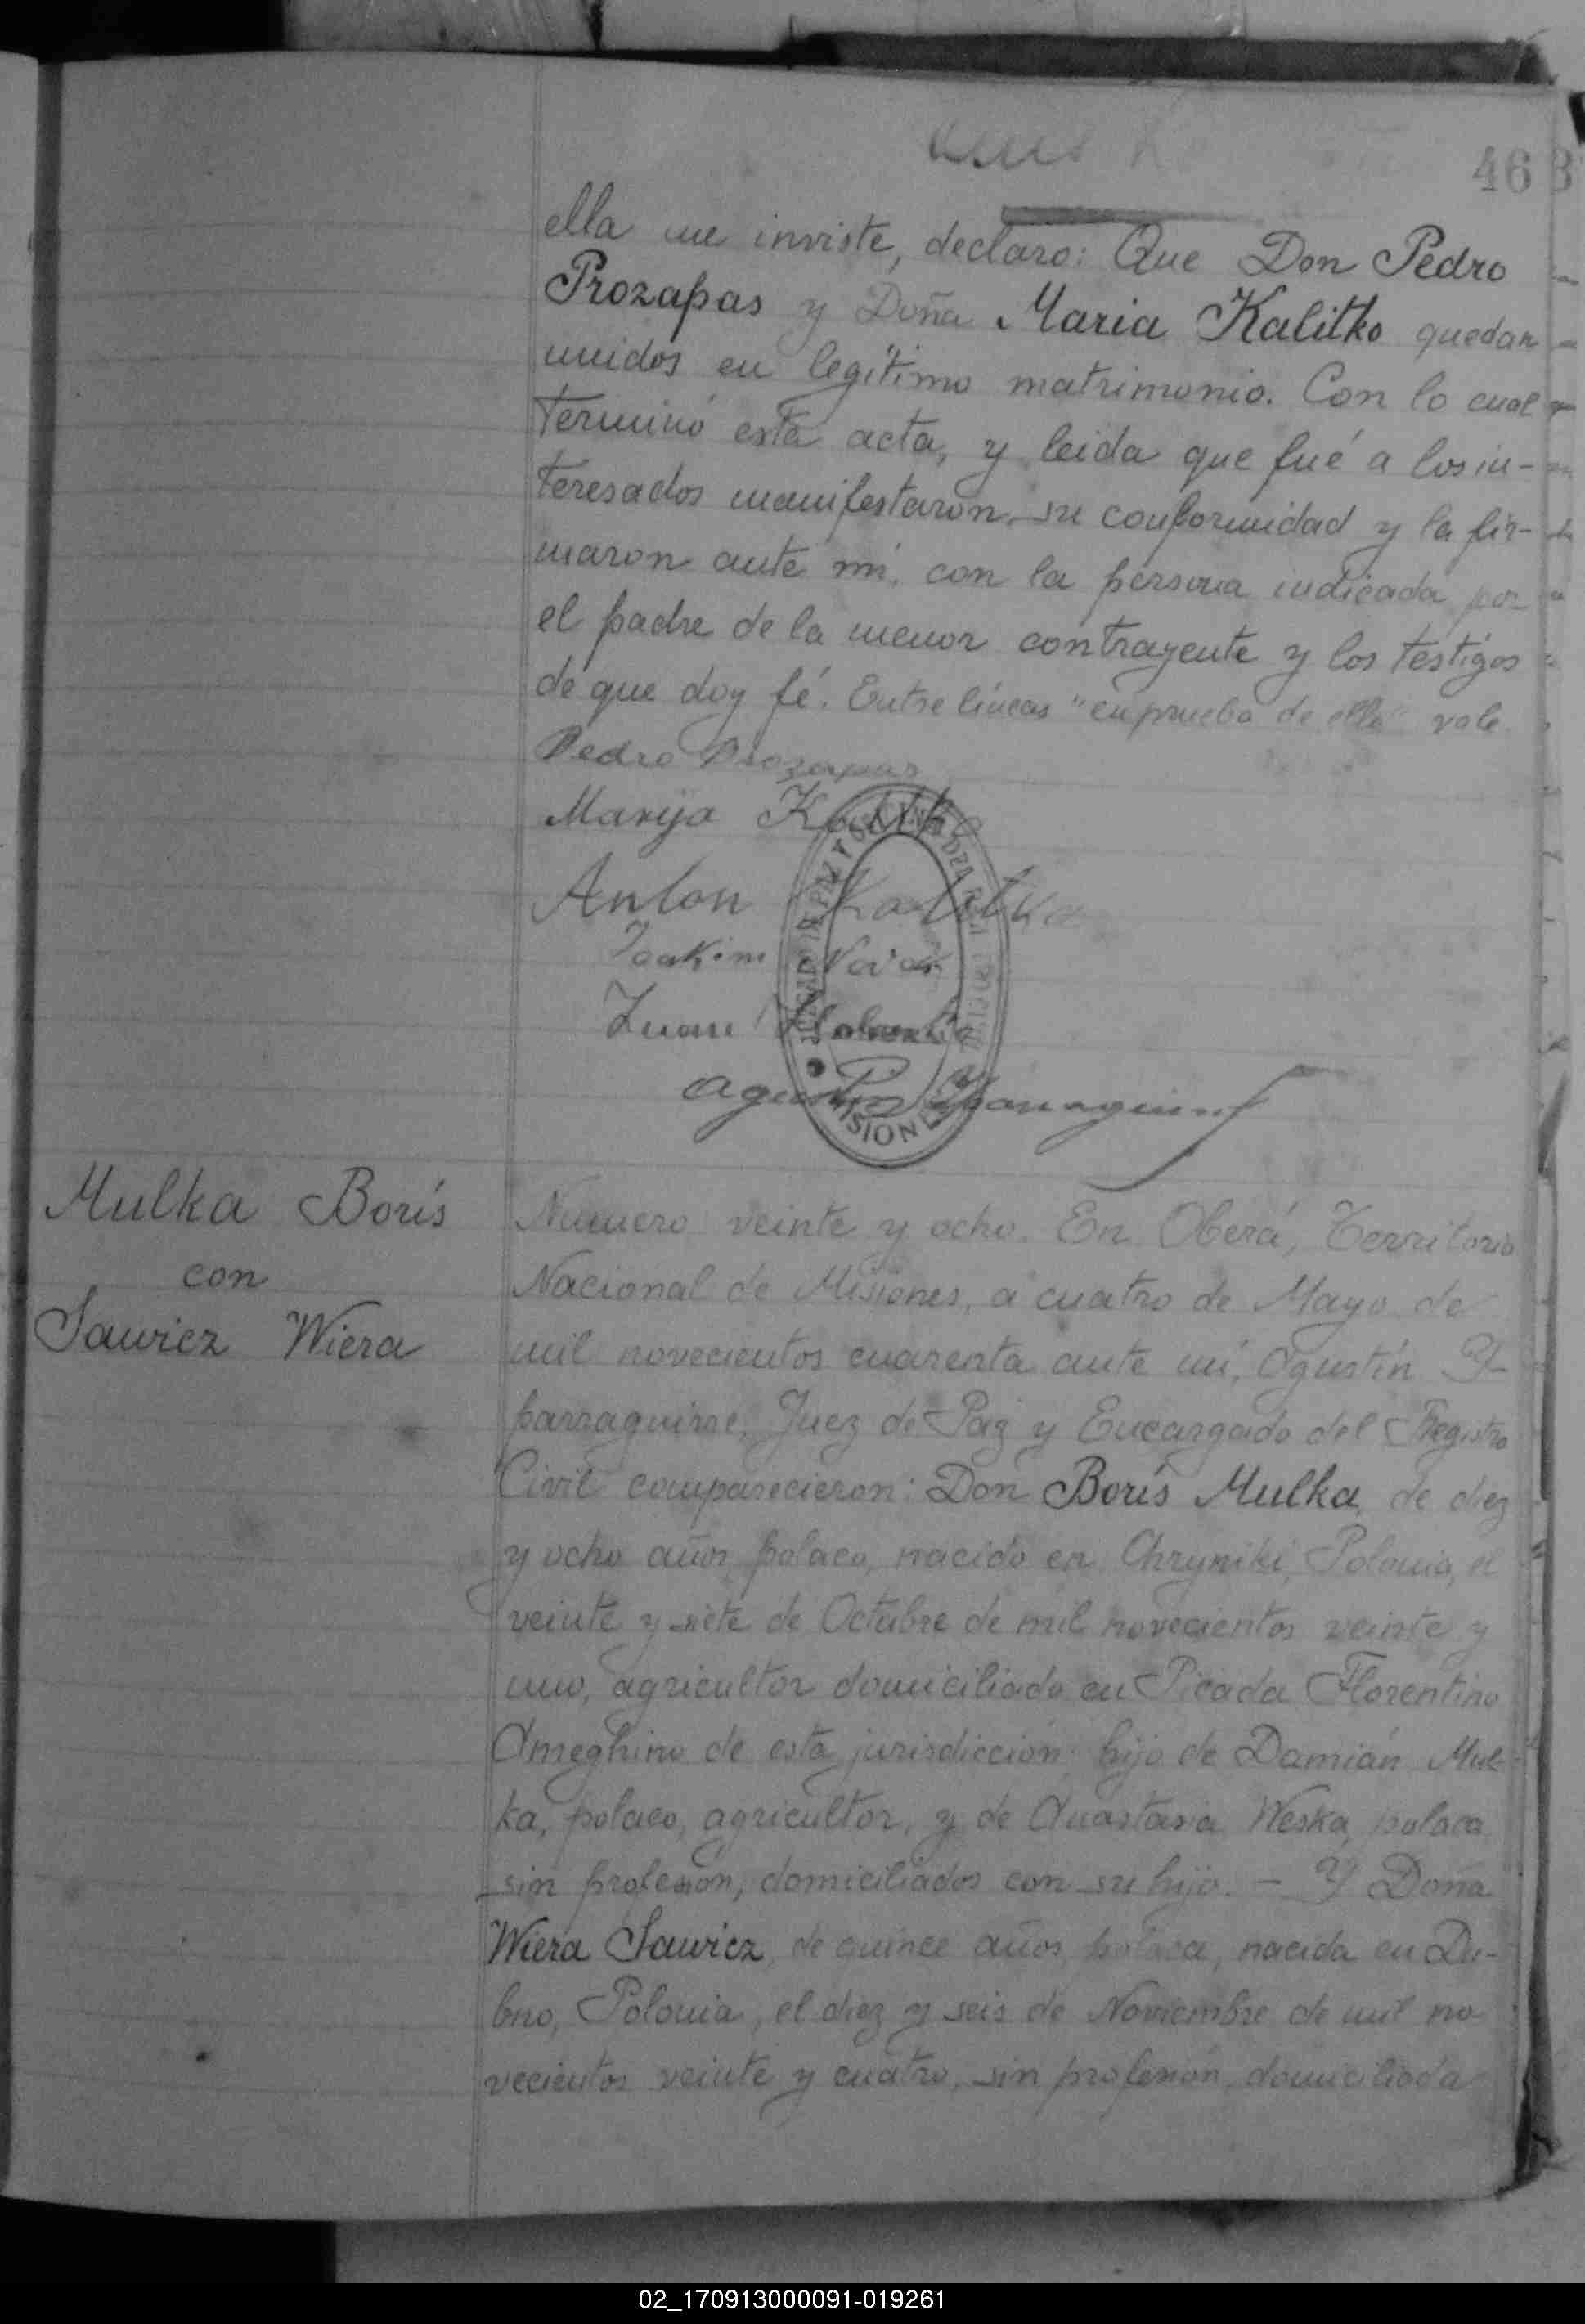 46
ella me inviste, declaro: Que Don Pedro
Prozapas y Doña Maria Kalitko quedan
unidos en legítimo matrimonio. Con lo cual
terminó esta acta, y leida que fué a los in-
teresados manifestaron su conformidad y la fir-
maron ante mí, con la persona indicada por
el padre de la menor contrayente y los testigos
de que doy fé. Entre líneas "en prueba de ello" vale.
Pedro Prozapas
Marija
Anton Kalitko
Joakim
Juan
Agustín Yparraguirre
MISIONES
Mulka Borís
con
Sawicz Wiera
Numero veinte y ocho. En Oberá, Territorio
Nacional de Misiones, a cuatro de Mayo de
mil novecientos cuarenta ante mí, Agustín Y-
parraguirre, Juez de Paz y Encargado del Registro
Civil comparecieron: Don Borís Mulka, de diez
y ocho años, polaco, nacido en Chryniki, Polonia, el
veinte y siete de Octubre de mil novecientos veinte y
uno, agricultor domiciliado en Picada Florentino
Ameghino de esta jurisdicción; hijo de Damián Mul-
ka, polaco, agricultor, y de Anastasia Weska, polaca
sin profesión, domiciliados con su hijo. - Y Doña
Wiera Sawicz, de quince años, polaca, nacida en Du-
bno, Polonia, el diez y seis de Noviembre de mil no-
vecientos veinte y cuatro, sin profesión, domiciliada
02_170913000091-019261